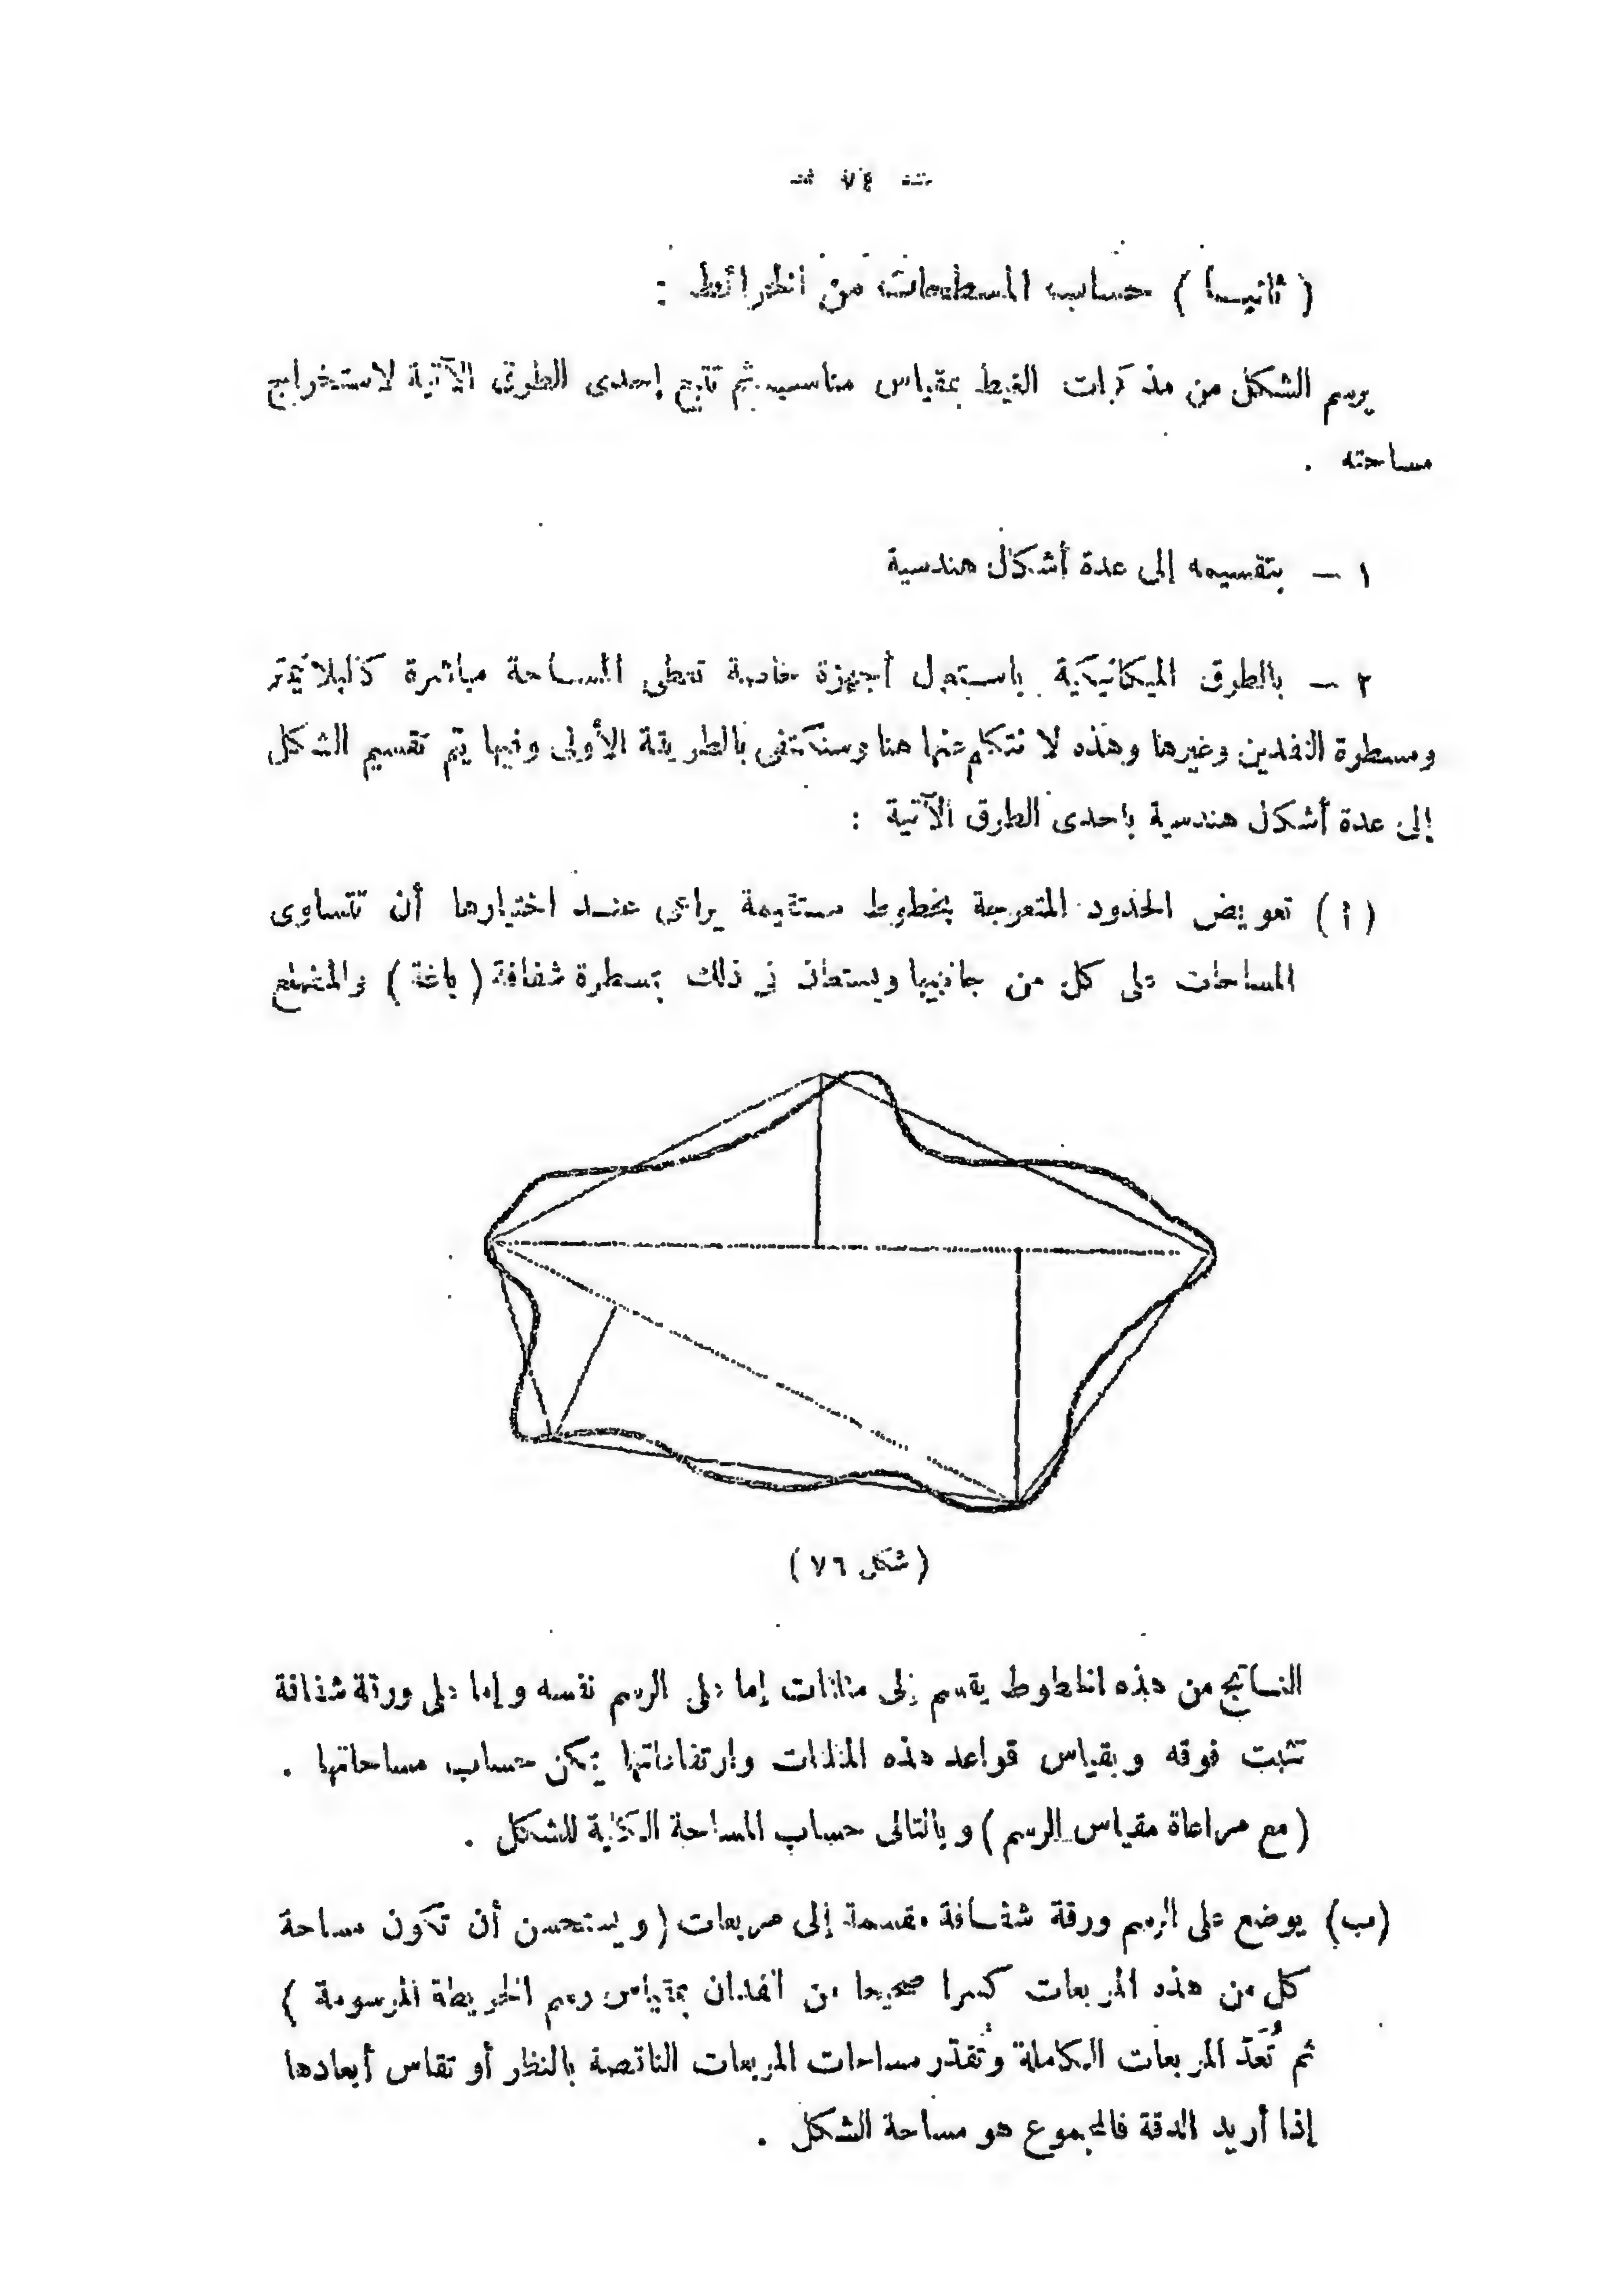 — ٧٤ —
( ثانيا ) حساب المسطحات من الخرائط :
يرسم الشكل من مذكرات الغيط بمقياس مناسب ثم تتبع إحدى الطرق الآتية لاستخراج
مساحته .
١ — بتقسيمه إلى عدة أشكال هندسية
٢ — بالطرق الميكانيكية باستعمال أجهزة خاصة تعطى المساحة مباشرة كالبلانيمتر
ومسطرة الفدين وغيرها وهذه لا نتكلم عنها هنا وسنكتفى بالطريقة الأولى وفيها يتم تقسيم الشكل
إلى عدة أشكال هندسية باحدى الطرق الآتية :
( أ ) تعويض الحدود المتعرجة بخطوط مستقيمة يراعى عند اختيارها أن تتساوى
المساحات على كل من جانبيها ويستعان فى ذلك بمسطرة شفافة ( باغة ) والمضلع
( شكل ٧٦ )
الناتج من هذه الخطوط يقسم إلى مثلثات إما على الرسم نفسه وإما على ورقة شفافة
تثبت فوقه وبقياس قواعد هذه المثلثات وارتفاعاتها يمكن حساب مساحاتها .
( مع مراعاة مقياس الرسم ) وبالتالى حساب المساحة الكلية للشكل .
(ب) يوضع على الرسم ورقة شفافة مقسمة إلى مربعات ( ويستحسن أن تكون مساحة
كل من هذه المربعات كسرا صحيحا من الفدان بمقياس رسم الخريطة المرسومة )
ثم تُعَدّ المربعات الكاملة وتُقدّر مساحات المربعات الناقصة بالنظر أو تقاس أبعادها
إذا أريد الدقة فالمجموع هو مساحة الشكل .